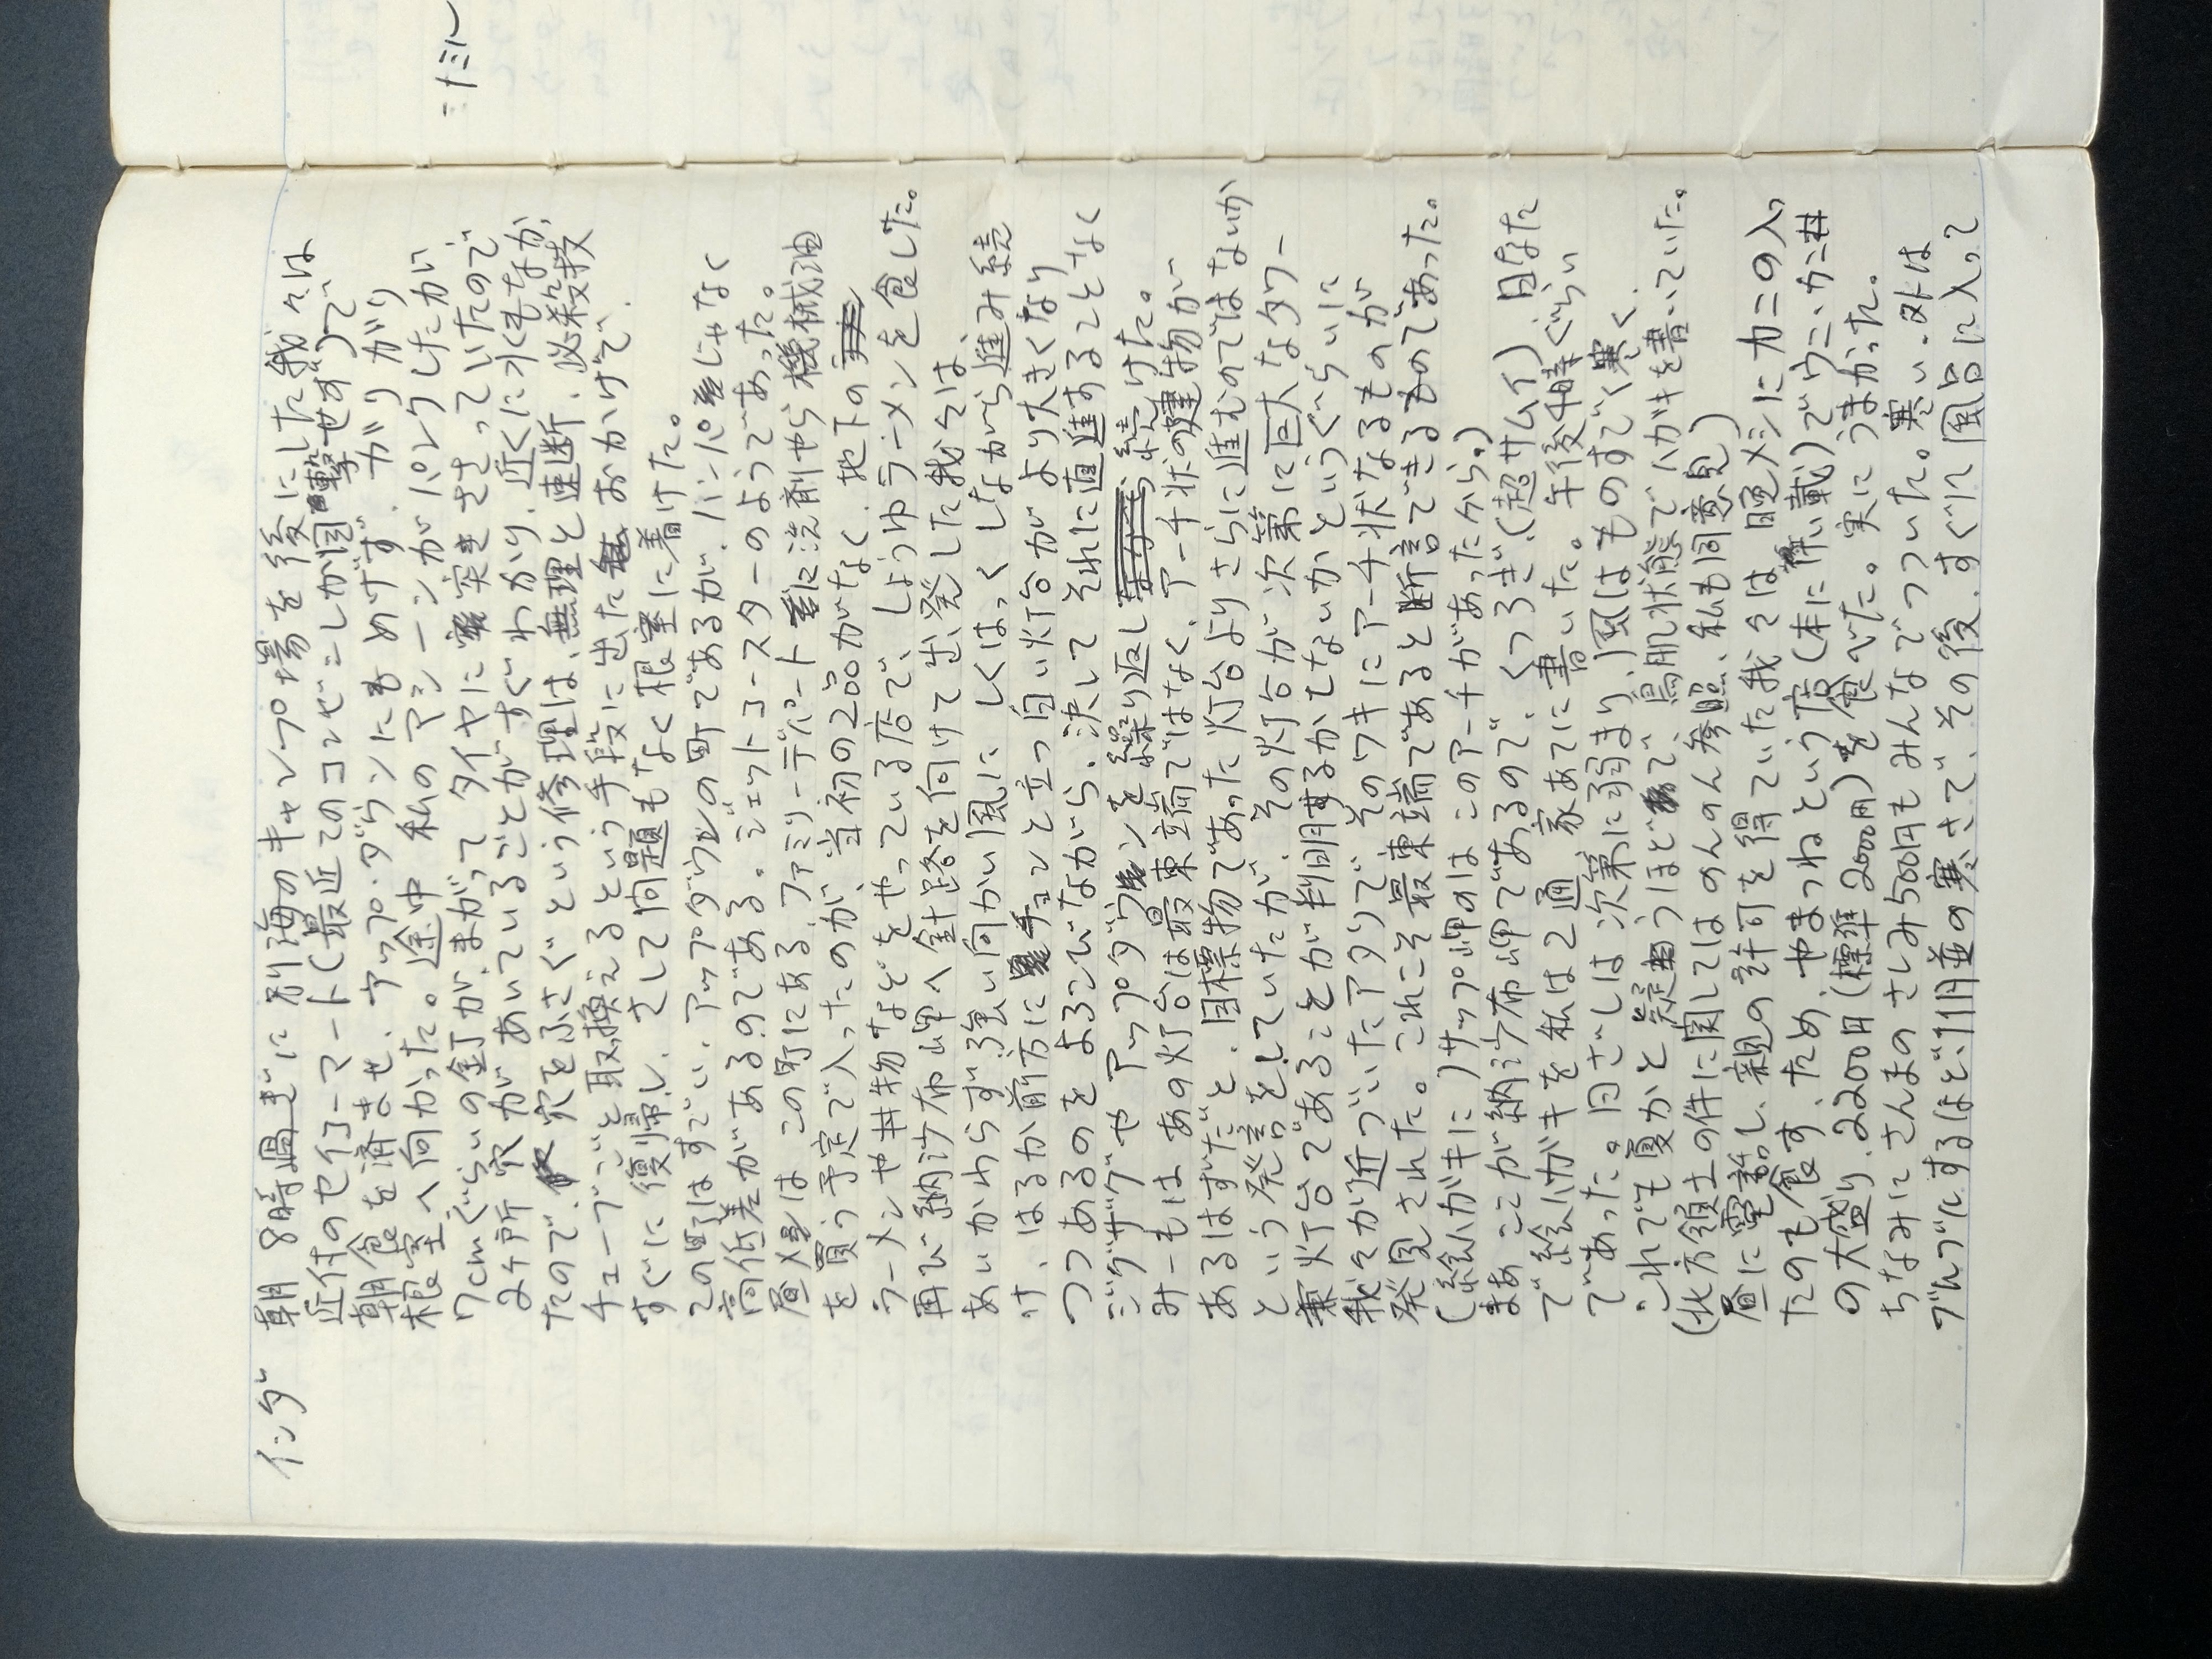 インダ
朝 8時過ぎに別海のキャンプ場を後にした我々は
近付のセイコーマート(最近てのコンビニしか目撃せず)で
朝食を済ませ、アップ・ダウンにもめげず、ガリガリ
根室へ向かった。途中 私のマシーンがパンクしたかい
7cmぐらいの釘が、まがって タイヤに突きささっていたので
2ヶ所 穴があいているごとがすぐわかり、近くに水もなか
たので、穴をふさぐという修理は、無理と速断、必殺技
チューブごと取換えるという手段に出た おかげで、
すぐに復帰し、さして問題もなく根室に着けた。
この町はすでい、アップダウンの町であるが、ハンパじゃなく
高低差があるのである。ジェットコースターのようであった。
昼メシは この町にある、ファミリーデパートに洗剤やら機械油
を買う予定で入ったのが、当初の200がなく、地下の
ラーメンや丼物などをやっている店で、しょうゆラーメンを食した。
再び納沙布岬へ針路を向けて出発した我々は、
あいかわらず強い向かい風に しくはっくしながら進み続
け、はるか前方にチョンと立つ白い灯台が より大きくなり
つつあるのをよろこびながら、決して それに直進することなく
ジグザグやアップダウンを繰り返し 続けた。
みーもは あの灯台は最東端ではなく、アーチ状の建物が
あるはずだと、目標物であった灯台よりさらに進むのではないか
という発言をしていたが、その灯台が次第に巨大なタワー
兼灯台であることが判明するかてないかというぐらいに
我々が近づいたアタリで そのワキにアーチ状なるものが
発見された。これこそ最東端であると断言できるものであった。
(絵ハガキに)サップ岬のは このアーチがあったから。)
まあ ここが納沙布岬であるので、くつろぎ、(超サムイ)日なた
で絵ハガキを私は2通 家あてに書いた。午後4時ぐらい
であった。日ざしは 次第に弱まり、風はものすごく寒く、
これでも夏かと疑うほどで、鳥肌状態でハガキを書いていた。
(北方領土の件に関してはのんのん参照、私も同意見)
昼に電話し、親の許可を得ていた我々は 晩メシにカニの入っ
たのも食す、ため、やまつねという店(本に 載)でウニ、カニ丼
の大盛り、2200円(標準2000円)を食べた。実にうまかった。
ちなみに さんまのさしみ500円もみんなでつついた。寒い、外は
ブルブルするほど、11月並の寒さで、その後、すぐに風呂に入って
ミナミル